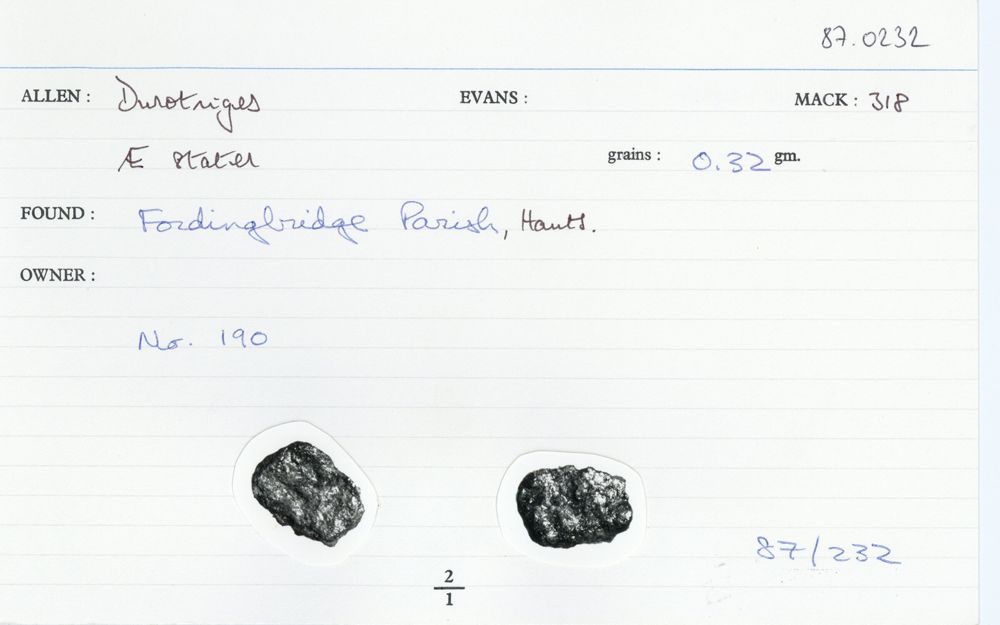 87.0232
ALLEN : Durotriges EVANS : MACK : 318
Æ stater grains : 0.32 gm.
FOUND : Fordingbridge Parish, Hants.
OWNER :
No. 190
87/232
2
1